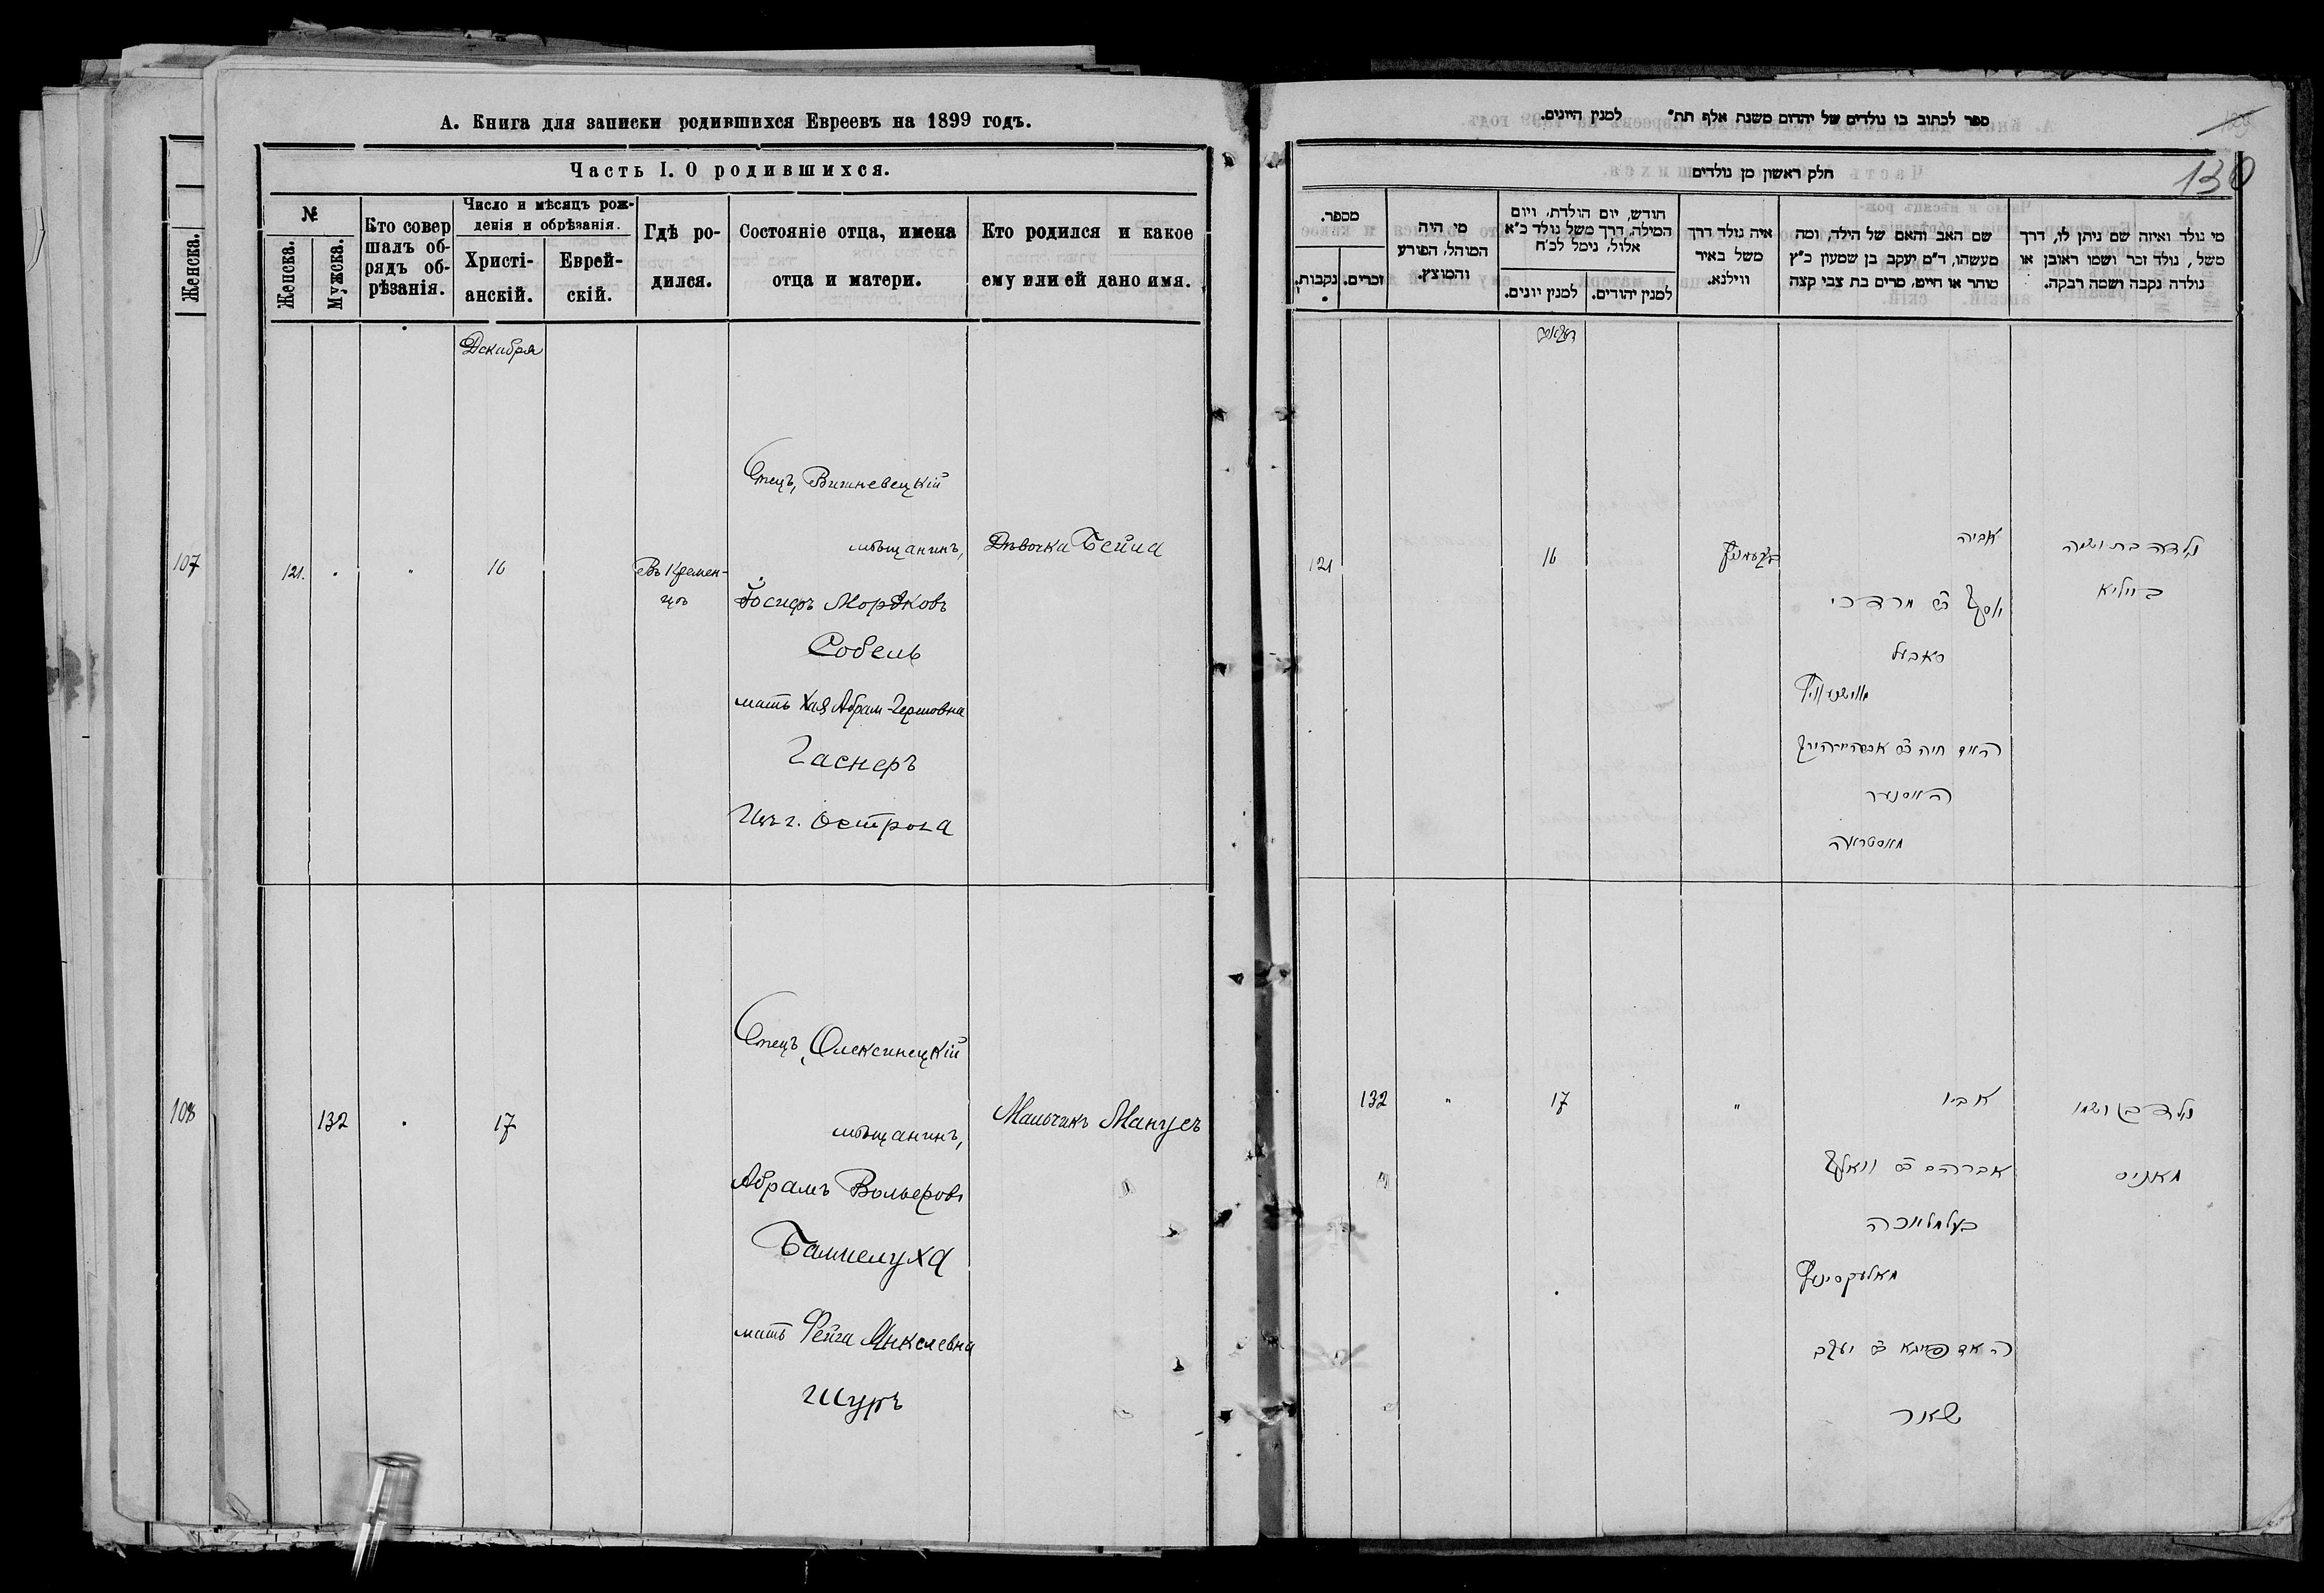 А. Книга для записки родившихся Евреевъ на 1899 годъ.
Часть I. О родившихся.
№
Женска.
Мужска.
Кто совер
шалъ об-
рядъ об-
рѣзанія.
Число и мѣсяцъ рож-
денія и обрѣзанія.
Христі-
анскій.
Еврей-
скій.
Гдѣ ро-
дился.
Состояніе отца, имена
отца и матери.
Кто родился и какое
ему или ей дано имя.
Женска.
107
108
Декабря
121.
16
Въ Кремен-
цѣ
Отецъ, Вишневецкій
мѣщанинъ,
Іосифъ Мордковъ
Собель
мать Хая Абрам-Гершовна
Гаснеръ
Изъ г. Острога
Дѣвочка Бейла
132
17
Отецъ, Олексинецкій
мѣщанинъ,
Абрамъ Вольфовъ
мать Фейга Янкелевна
Шуръ
Мальчикъ Манусъ
ספר לכתוב בו נולדים של יהדום משנת אלף תת״ למנין היונים.
129
130
חלק ראשון מן נולדים
מספר.
נקבות.
זכרים.
מי היה
המוהל, הפורע
והמוצץ.
חודש, יום הולדת, ויום
המילה, דרך משל נולד כ״א
אלול, נימל לכ״ח
למנין יונים.
למנין יהודים.
איה נולד דרך
משל באיר
ווילנא.
שם האב והאם של הילד, ומה
מעשהו, ד״מ יעקב בן שמעון כ״ץ
סוחר או חייט, מרים בת צבי קצה
מי נולד ואיזה שם ניתן לו, דרך
משל, נולד זכר ושמו ראובן או
נולדה נקבה ושמה רבקה.
121
16
אביה
יוסף ב״ר מרדכי
סאבעל
האם חיה ב״ר אברהם הירש
האסנער
מאוסטראה
נולדה בת ושמה
ביילא
132
17
אביו
אברהם ב״ר וואלף
מאלעקסיניץ
האם פייגא ב״ר יעקב
שאור
נולד בן ושמו
מאניס